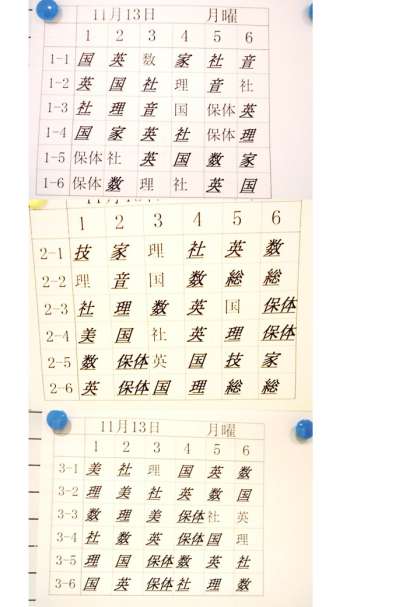 11月13日 月曜
1 2 3 4 5 6
1-1 国 英 数 家 社 音
1-2 英 国 社 理 音 社
1-3 社 理 音 国 保体 英
1-4 国 家 英 社 保体 理
1-5 保体 社 英 国 数 家
1-6 保体 数 理 社 英 国
1 2 3 4 5 6
2-1 技 家 理 社 英 数
2-2 理 音 国 数 総 総
2-3 社 理 数 英 国 保体
2-4 美 国 社 英 理 保体
2-5 数 保体 英 国 技 家
2-6 英 保体 国 理 総 総
11月13日 月曜
1 2 3 4 5 6
3-1 美 社 理 国 英 数
3-2 理 美 社 英 数 国
3-3 数 理 美 保体 社 英
3-4 社 数 英 保体 国 理
3-5 理 国 保体 数 英 社
3-6 国 英 保体 社 理 数